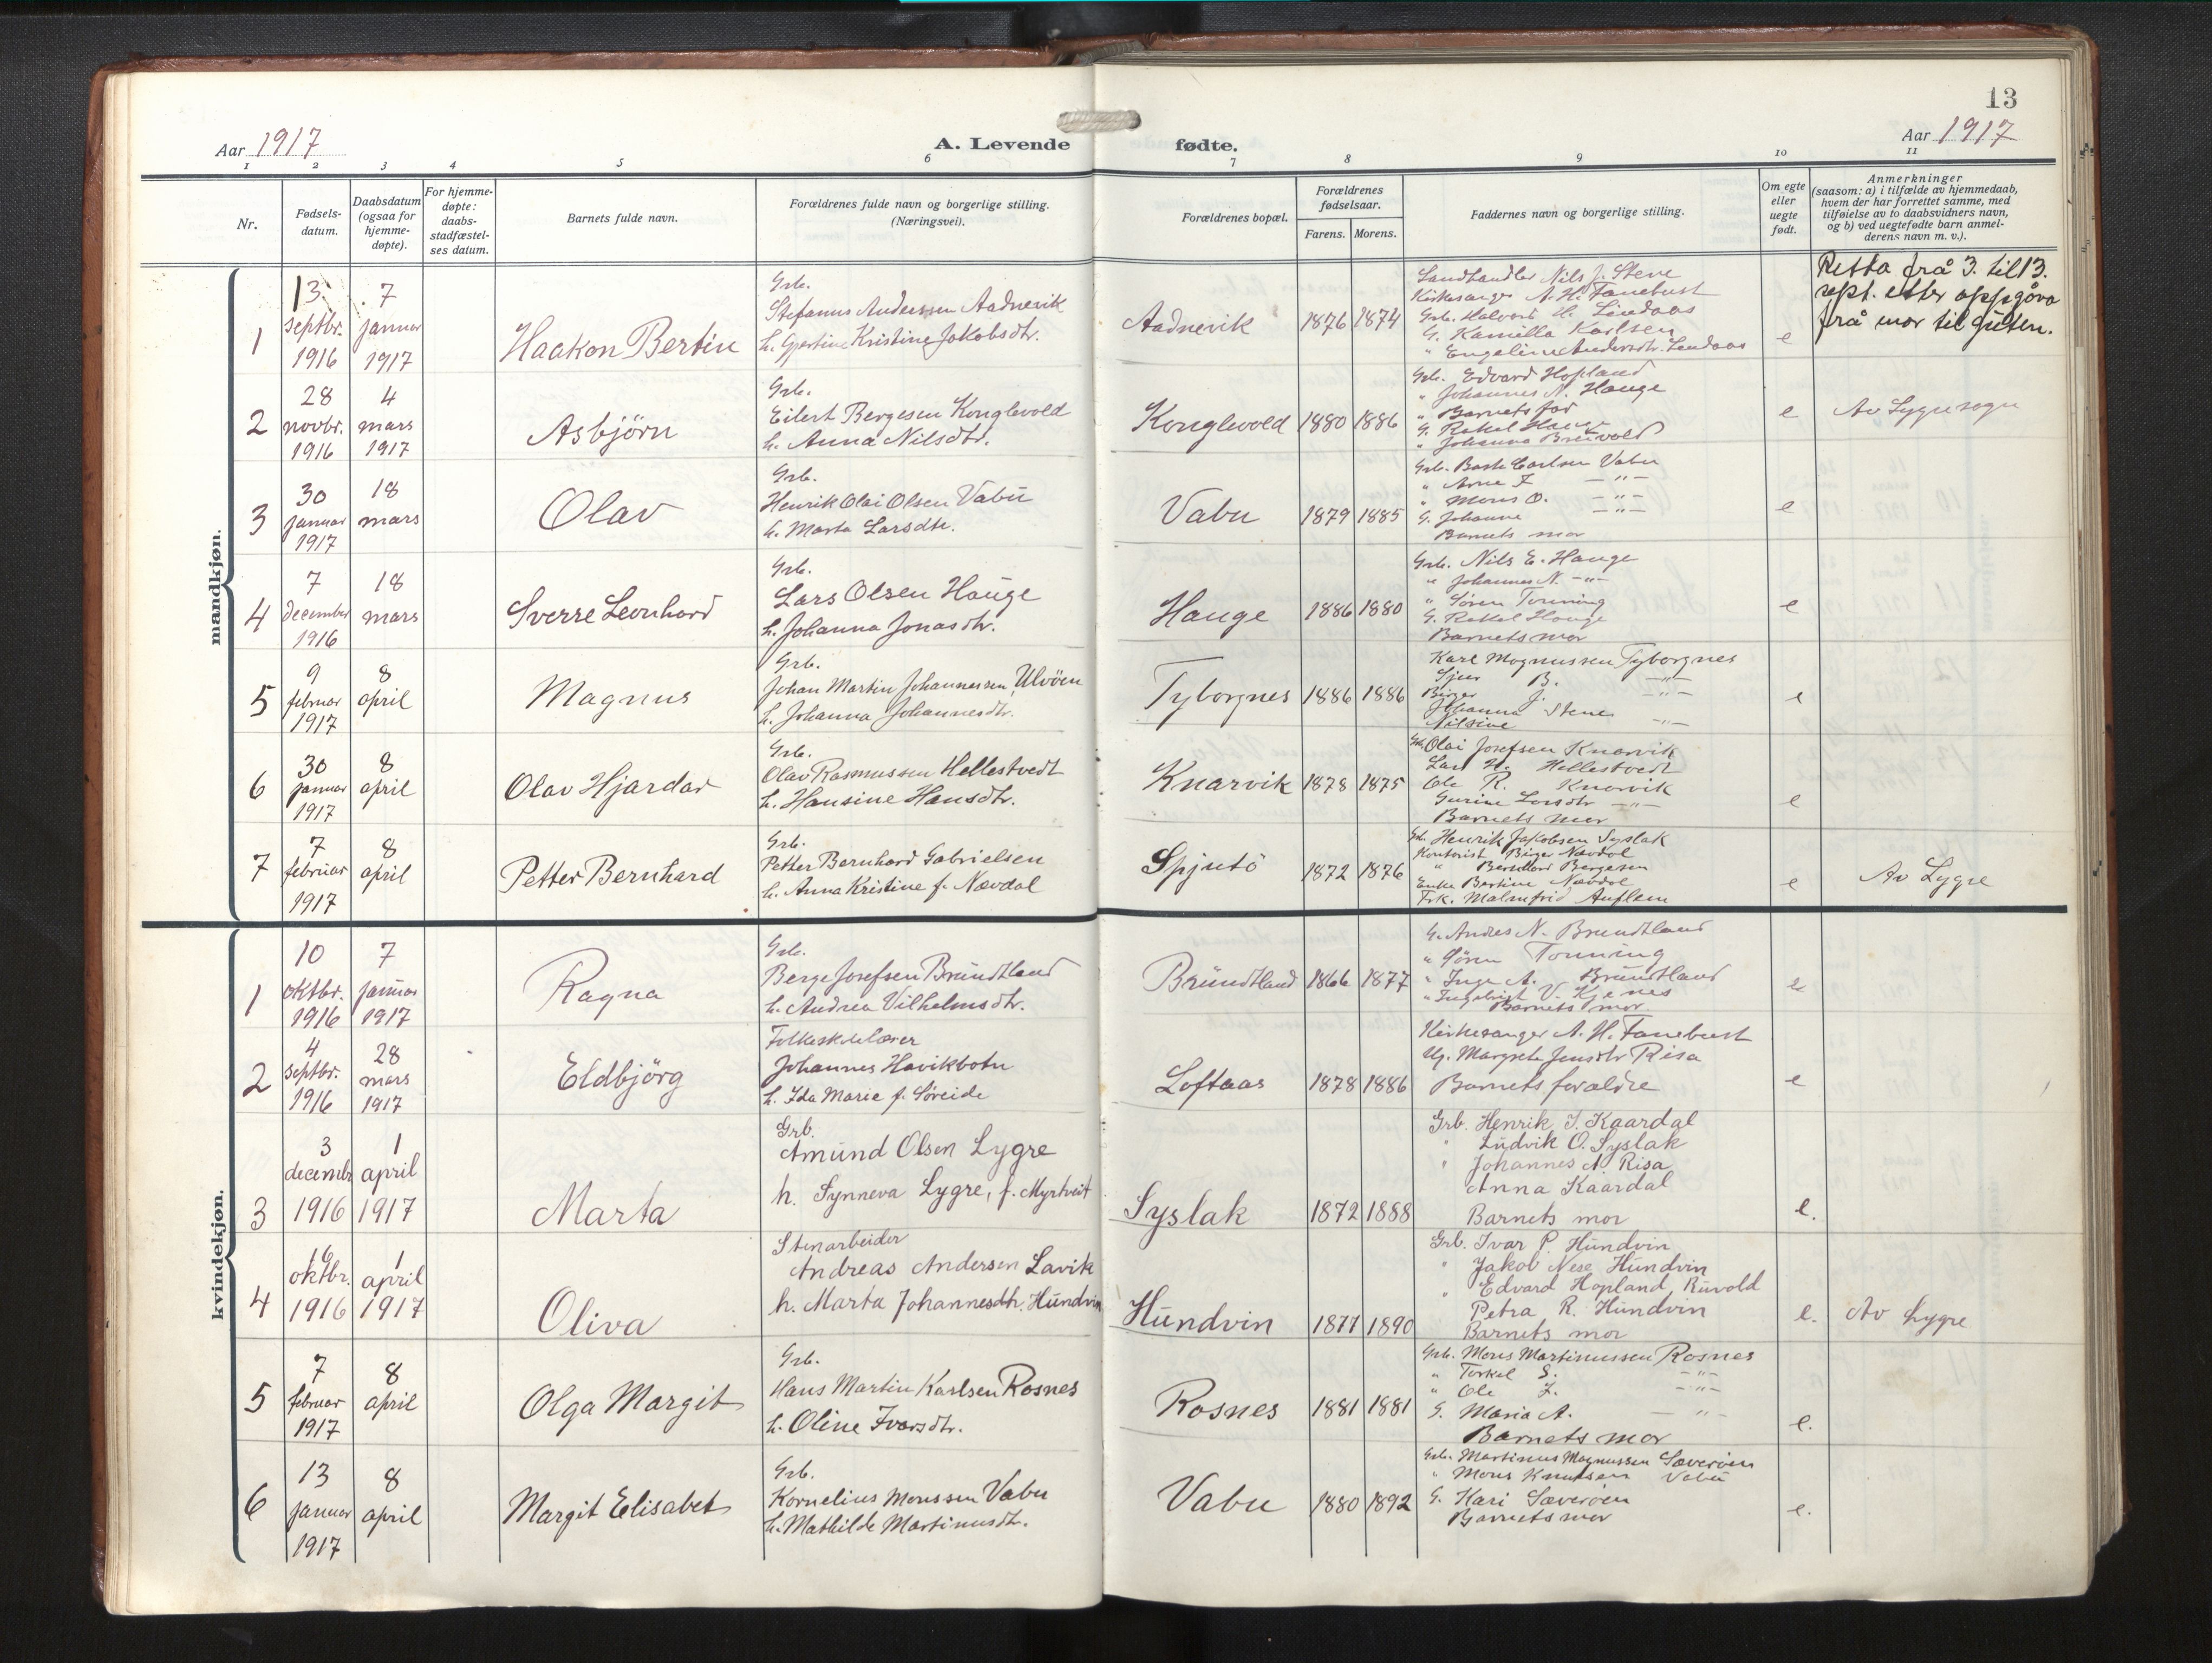 13
Aar 1917
A. Levende fødte.
Aar 1917
1 2 3 4 5 6 7 8 9 10 11
Nr.
Fødsels-
datum.
Daabsdatum
(ogsaa for
hjemme-
døpte).
For hjemme-
døpte:
daabs-
stadfæstel-
ses datum.
Barnets fulde navn.
Forældrenes fulde navn og borgerlige stilling.
(Næringsvei).
Forældrenes bopæl.
Forældrenes
fødselsaar.
Farens. Morens.
Faddernes navn og borgerlige stilling.
Om egte
eller
uegte
født.
Anmerkninger
(saasom: a) i tilfælde av hjemmedaab,
hvem der har forrettet samme, med
tilføielse av to daabsvidners navn,
og b) ved uegtefødte barn anmel-
derens navn m. v.).
mandkjøn.
1
13
septbr.
1916
7
januar
1917
Haakon Bertin
Grb.
Stefanus Anderssen Aadnevik
h. Gjertine Kristine Jakobsdtr.
Aadnevik
1876 1874
Landhandler Nils J. Stene
Kirkesanger A. H. Fanebust
Grb. Halvord H. Lindaas
G. Kamilla Karlsen
" Engeline Andersdtr. Lindaas
e
Retta frå 3. til 13.
sept. etter oppgåva
frå mor til guten.
2
28
novbr.
1916
4
mars
1917
Asbjörn
Grb.
Eilert Bergesen Konglevold
h. Anna Nilsdtr.
Konglevold
1880 1886
Grb. Edvard Hopland
" Johannes N. Hauge
" Barnets far
G. Rakel Hauge
" Johanna Bruvold
e
Av Lygresogn
3
30
januar
1917
18
mars
Olav
Grb.
Henrik Olai Olsen Vabu
h. Marta Larsdtr.
Vabu
1879 1885
Grb. Carlsen Vabu
" Arne I. — " —
" Mons O. — " —
G. Johanne — " —
Barnets mor
e
4
7
december
1916
18
mars
Sverre Leonhard
Grb.
Lars Olsen Hauge
h. Johanna Jonasdtr.
Hauge
1886 1880
Grb. Nils E. Hauge
" Johannes N. — " —
" Søren Tonning
G. Rakel Hauge
Barnets mor
e
5
9
februar
1917
8
april
Magnus
Grb.
Johan Martin Johannessen Ulvöen
h. Johanna Johannesdtr.
Tyborgnes
1886 1886
Karl Magnussen Tyborgnes
Sjur B. — " —
Birger J. — " —
Johanna Stene
Nilsine — " —
e
6
30
januar
1917
8
april
Olav Hjardar
Grb.
Olav Rasmussen Hellestvedt
h. Hansine Hansdtr.
Knarvik
1878 1875
Grb. Olai Josefsen Knarvik
Lars H. Hellestvedt
Ole R. Knarvik
Gurine Larsdtr — " —
Barnets mor
e
7
7
februar
1917
8
april
Petter Bernhard
Grb.
Petter Bernhard Gabrielsen
h. Anna Kristine f. Nævdal
Spjutö
1872 1876
Grb. Henrik Jakobsen Syslak
Kontorist Birger Nævdal
" Bernhard Bergesen
Enke Bertine Nævdal
Frk. Malmfrid
e
Av Lygre
kvindekjøn.
1
10
oktbr.
1916
7
januar
1917
Ragna
Grb.
Berge Josefsen Brundtland
h. Andrea Vilhelmsdtr.
Brundtland
1866 1877
G. Andres N. Brundtland
" Søren Tonning
" Inge A. Brundtland
" Ingebrigt V. Kjenes
Barnets mor
e
2
4
septbr.
1916
28
mars
1917
Eldbjörg
Folkeskolelærer
Johannes Havikbotn
h. Ida Marie f. Søreide
Loftaas
1878 1886
Kirkesanger A. H. Fanebust
Ug. Margrete Jensdtr Risa
Barnets forældre
e
3
3
decembr.
1916
1
april
1917
Marta
Grb.
Amund Olsen Lygre
h. Synneva Lygre, f. Myrtveit
Syslak
1872 1888
Grb. Henrik I. Kaardal
" Ludvik O. Syslak
" Johannes A. Risa
Anna Kaardal
Barnets mor
e.
4
16
oktbr.
1916
1
april
1917
Oliva
Stenarbeider
Andreas Andersen Lavik
h. Marta Johannesdtr. Hundvin
Hundvin
1877 1890
Grb. Ivar P. Hundvin
" Jakob Nese Hundvin
" Edvard Hopland, Buvold
Petra R. Hundvin
Barnets mor
e.
Av Lygre
5
7
februar
1917
8
april
Olga Margit
Grb.
Hans Martin Karlsen Rosnes
h. Oline Ivarsdtr.
Rosnes
1881 1881
Grb. Mons Martinussen Rosnes
" Torkel S. — " —
" Ole I. — " —
G. Maria A. — " —
Barnets mor
e.
6
13
januar
1917
8
april
Margit Elisabet
Grb.
Kornelius Monssen Vabu
h. Mathilde Martinusdtr.
Vabu
1880 1892
Grb. Martinus Magnussen Sæveröen
" Mons Knutsen Vabu
G. Kari Sæveröen
Barnets mor
e.